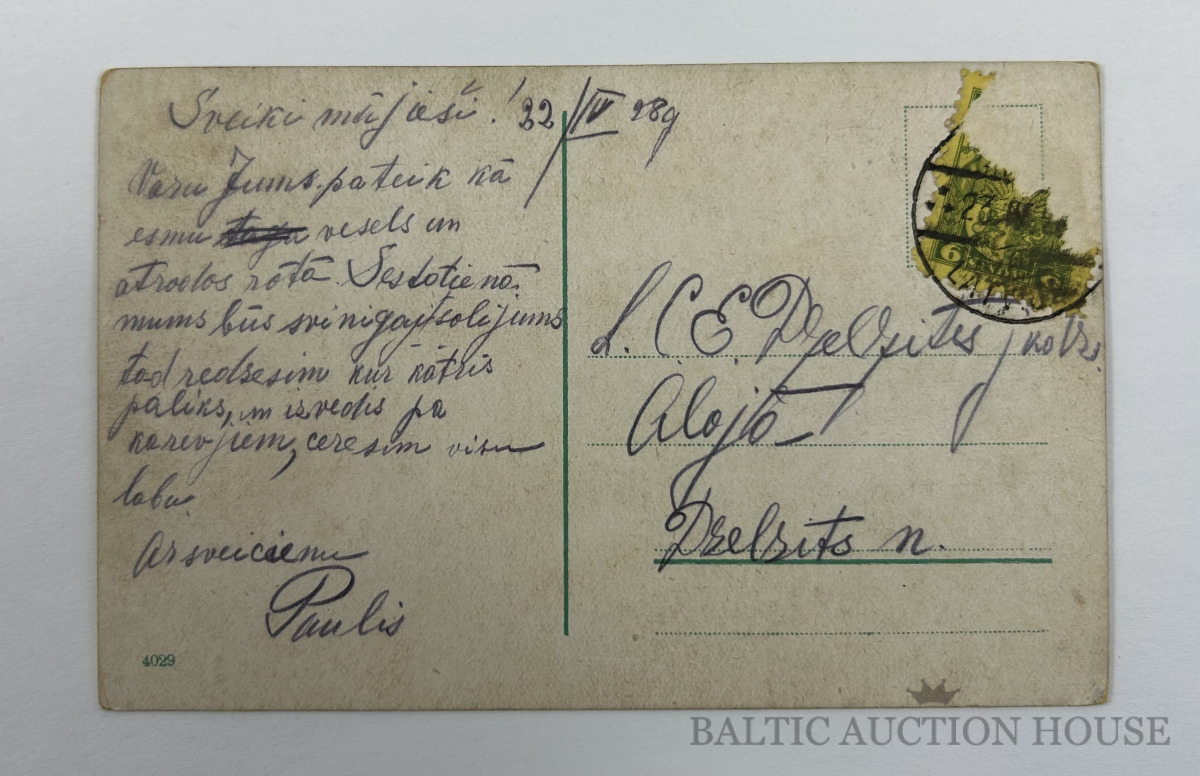 Sveiki mājieši! 22/IV 28g
Varu Jums pateik kā
esmu vesels un
atrodos rotā. Sestdienā
mums būs svinigaj solijums
tad redzesim kur katris
paliks, un izvedis pa
karevjiem, ceresim visu
labu.
Ar sveicienu
Paulis
4029
23 IV
6 6
L. C. E. Dzelzites j kdzi.
Alojā
Dzelzits n.
BALTIC AUCTION HOUSE